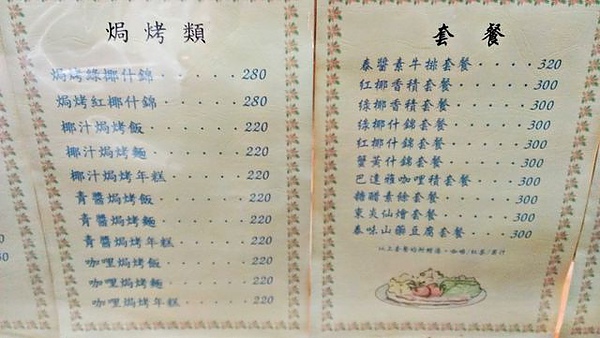 焗烤類
焗烤綠椰什錦······280
焗烤紅椰什錦······280
椰汁焗烤飯······220
椰汁焗烤麵······220
椰汁焗烤年糕·····220
青醬焗烤飯······220
青醬焗烤麵······220
青醬焗烤年糕·····220
咖哩焗烤飯······220
咖哩焗烤麵······220
咖哩焗烤年糕·····220
套餐
泰醬素牛排套餐····320
紅椰香積套餐·····300
綠椰香積套餐·····300
綠椰什錦套餐·····300
紅椰什錦套餐·····300
蟹黃什錦套餐·····300
巴達雅咖哩積套餐···300
糖醋素餘套餐·····300
東炎仙燴套餐·····300
泰味山藥豆腐套餐···300
以上套餐均附甜湯·咖啡/紅茶/果汁